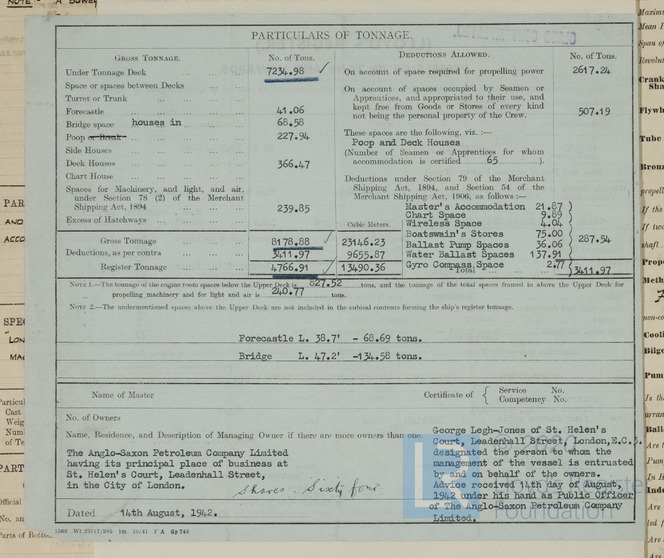 PARTICULARS OF TONNAGE.
GROSS TONNAGE. No. of Tons.
Under Tonnage Deck ... ... 7234.98 ✓
Space or spaces between Decks
Turret or Trunk ... ...
Forecastle ... ... 41.06
Bridge space houses in ... 68.58
Poop or Break ... ... 227.94
Side Houses ... ...
Deck Houses ... ... 366.47
Chart House ... ...
Spaces for Machinery, and light, and air,
under Section 78 (2) of the Merchant
Shipping Act, 1894 ... ... 239.85
Excess of Hatchways ... ...
Cubic Metres.
Gross Tonnage ... 8178.88 ✓ 23146.23
Deductions, as per contra ... 3411.97 9655.87
Register Tonnage ... 4766.91 ✓ 13490.36
DEDUCTIONS ALLOWED. No. of Tons.
On account of space required for propelling power 2617.24
On account of spaces occupied by Seamen or
Apprentices, and appropriated to their use, and
kept free from Goods or Stores of every kind
not being the personal property of the Crew. 507.19
These spaces are the following, viz. :—
Poop and Deck Houses
(Number of Seamen or Apprentices for whom
accommodation is certified 65 ).
Deductions under Section 79 of the Merchant
Shipping Act, 1894, and Section 54 of the
Merchant Shipping Act, 1906, as follows:—
Master's Accommodation 21.87
Chart Space 9.89
Wireless Space 4.04
Boatswain's Stores 75.00
Ballast Pump Spaces 36.06 287.54
Water Ballast Spaces 137.91
Gyro Compass Space 2.77
Total 3411.97
NOTE 1.—The tonnage of the engine room spaces below the Upper Deck is 827.52 tons, and the tonnage of the total spaces framed in above the Upper Deck for
propelling machinery and for light and air is 240.77 tons.
NOTE 2.—The undermentioned spaces above the Upper Deck are not included in the cubical contents forming the ship's register tonnage.
Forecastle L. 38.7' - 68.69 tons.
Bridge L. 47.2' -134.58 tons.
Name of Master Certificate of { Service No.
Competency No.
No. of Owners
Name, Residence, and Description of Managing Owner if there are more owners than one.
The Anglo-Saxon Petroleum Company Limited
having its principal place of business at
St. Helen's Court, Leadenhall Street,
in the City of London.
Shares. Sixty four
George Legh-Jones of St. Helen's
Court, Leadenhall Street, London, E.C.3.
designated the person to whom the
management of the vessel is entrusted
by and on behalf of the owners.
Advice received 14th day of August,
1942 under his hand as Public Officer
of The Anglo-Saxon Petroleum Company
Limited.
Dated 14th August, 1942.
Foundation